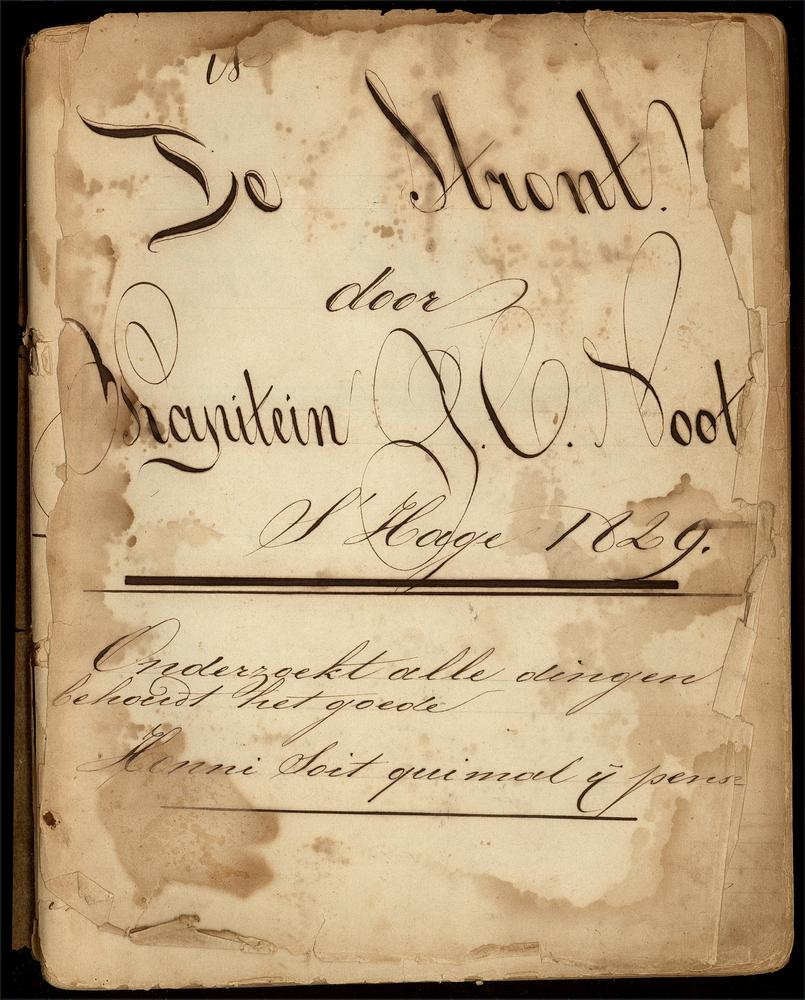 De Stront.
door
Kapitein J. C. Noot
S' Hage 1829.
Onderzoekt alle dingen
behoudt het goede
Honni Soit qui mal ÿ pens=